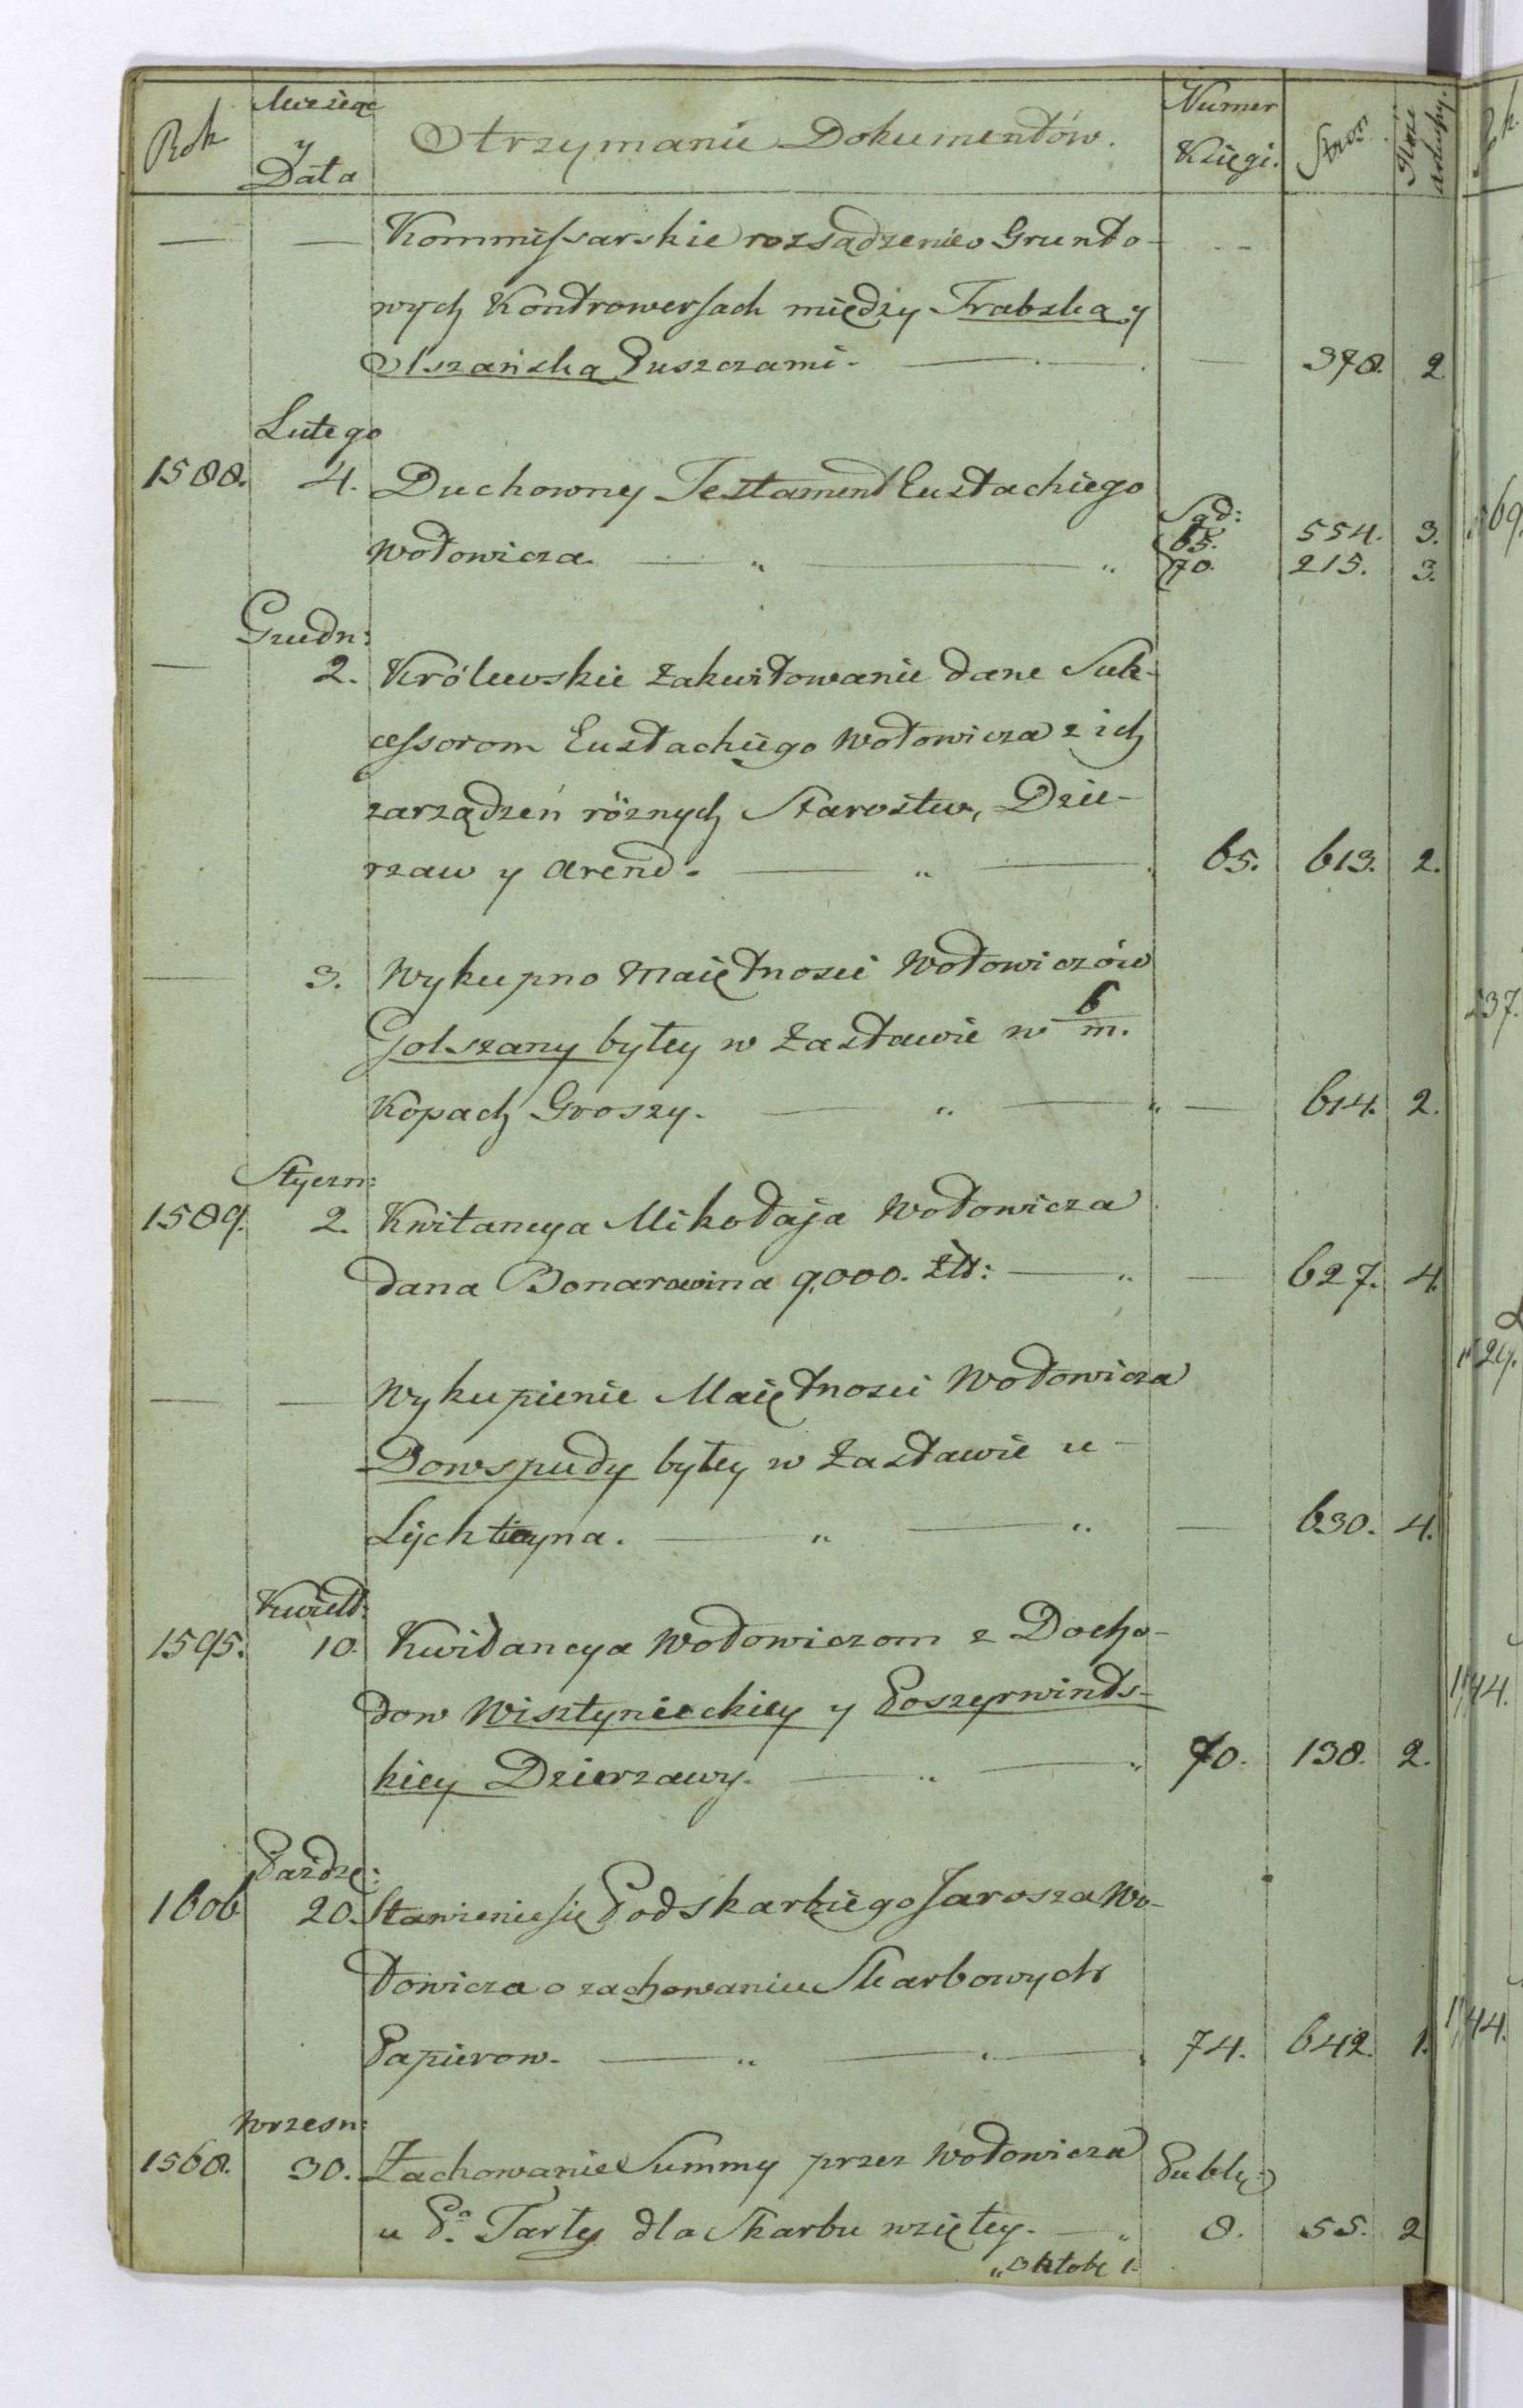 Rok Miesiąc y Data Otrzymanie Dokumentów. Numer Księgi. Stron
— — Kommissarskie rozsądzenie o Grunto-
wych Kontrowersach między Trabską y
Olszańską Puszczami. — — 378. 2
Lutego
1588. 4. Duchowny Testament Eustachiego
Sąd:
65. 554. 3.
Wołowicza. — „ — „ 70. 215. 3.
Grudn:
— 2. Królewskie zakwitowanie dane Suk-
cessorom Eustachiego Wołowicza z ich
zarządzeń róznych Starostw, Dzie-
rzaw y Arend. — „ — 65. 613. 2.
— 3. Wykupno Maiętnosci Wołowiczów
Golszany byłey w Zastawie w 6/m.
Kopach Groszy. — „ — „ — 614. 2.
Styczn:
1589. 2. Kwitancya Mikołaja Wołowicza
dana Bonarowi na 9,000. Złł: — „ — 627. 4.
— — Wykupienie Maiętnosci Wołowicza
Dowspudy byłey w Zastawie u
Lychtayna. — „ — „ — 630. 4.
Kwiet:
1595. 10. Kwitancya Wołowiczom z Docho-
dow Wisztynieckiey y Poszyrwints-
kiey Dzierzawy. — „ — „ 70. 138. 2.
Pazdz:
1606 20. Stawienie się Podskarbiego Jarosza Wo-
łowicza o zachowaniu Skarbowych
Papierow. — „ — 74. 642. 1.
Wrzesn:
1568. 30. Zachowanie Summy przez Wołowicza Publ:
u Pa. Tarły dla Skarbu wziętey. — „ 8. 55. 2
„ Oktob: 1.